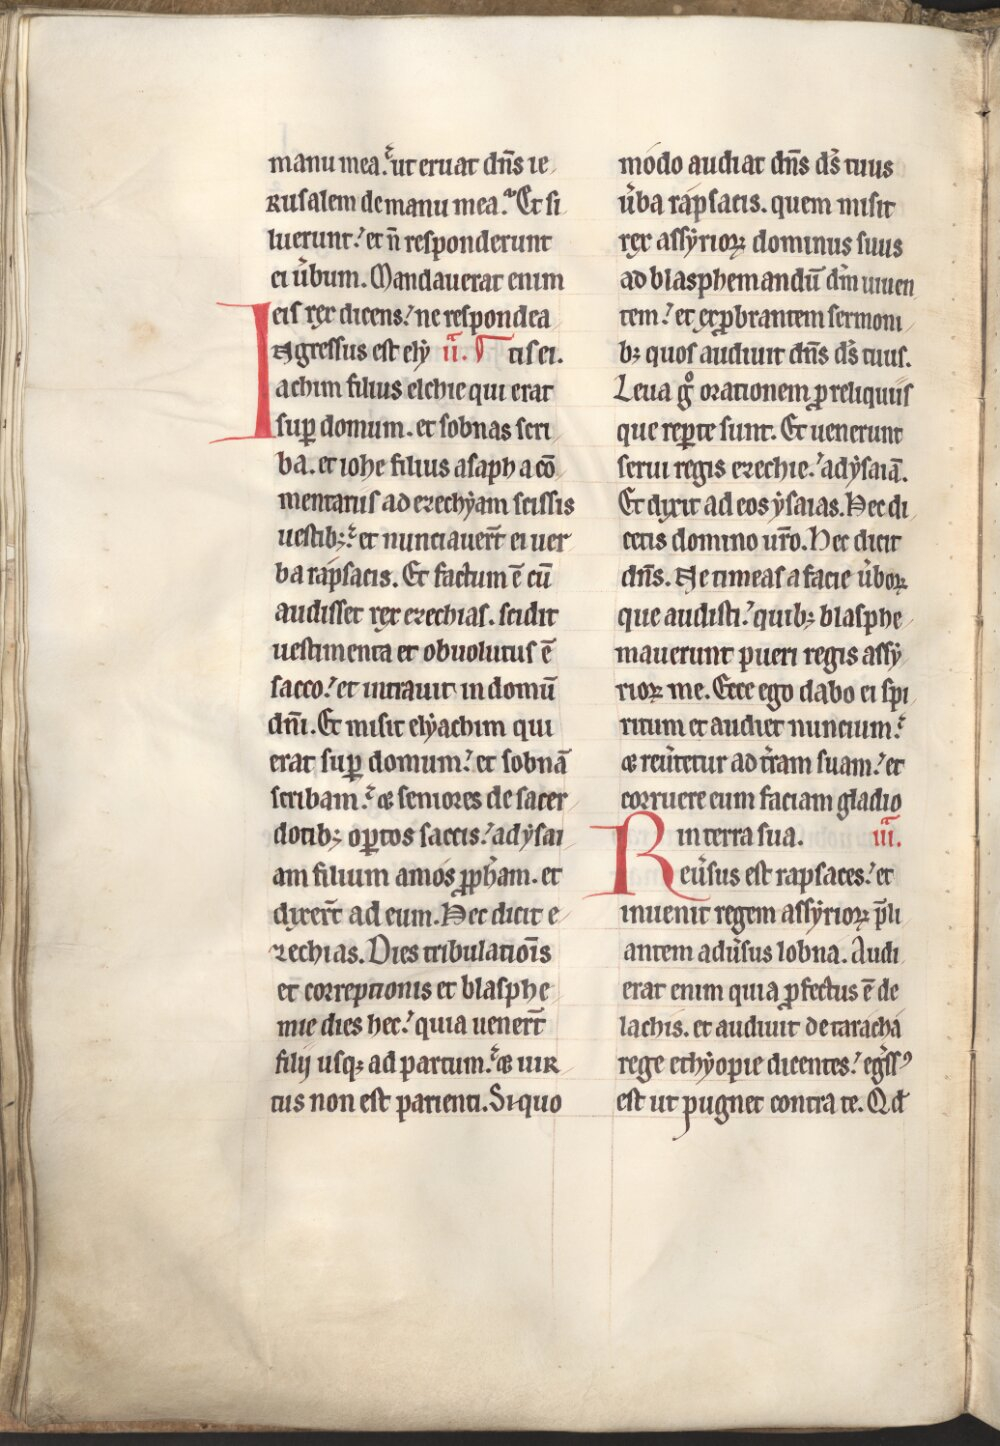 manu mea. ut eruat dn̄s ie
rusalem de manu mea. Et si
luerunt. et n̄ responderunt
ei u̓bum. Mandauerat enim
eis rex dicens. ne respondea
Ingressus est ely ii.a tis ei.
achim filius elchie qui erat
sup̱ domum. et sobnas scri
ba. et iohe filius asaph a cō
mentariis ad ezechyam scissis
uestib; et nunciauer̄t ei uer
ba rapsacis. Et factum ē cū
audisset rex ezechias. scidit
uestimenta et obuolutus ē
sacco. et intrauit in domū
dn̄i. Et misit elyachim qui
erat sup̱ domum. et sobnā
scribam. et seniores de sacer
dotib; op̱tos saccis. ad ysai
am filium amos ꝓph̄am. et
dixer̄t ad eum. Hec dicit e
zechias. Dies tribulatiōis
et correptionis et blasphe
mie dies hec. quia uener̄t
filij usq; ad partum. et uir
tus non est parienti. Si quo
modo audiat dn̄s ds̄ tuus
u̓ba rapsacis. quem misit
rex assyrioꝝ dominus suus
ad blasphemandū dm̄ uiuen
tem. et exꝓbrantem sermoni
b; quos audiuit dn̄s ds̄ tuus.
Leua gͦ orationem ꝓ reliquiis
que rep̱te sunt. Et uenerunt
serui regis ezechie. ad ysaiā.
Et dixit ad eos ysaias. Hec di
cetis domino ur̄o. Hec dicit
dn̄s. Ne timeas a facie u̓boꝝ
que audisti. quib; blasphe
mauerunt pueri regis assy
rioꝝ me. Ecce ego dabo ei spi
ritum et audiet nuncium.
et reu̓tetur ad tr̄am suam. et
corruere eum faciam gladio
in terra sua. iii.a
Reu̓sus est rapsaces. et
inuenit regem assyrioꝝ p̄li
antem adu̓sus lobna. Audi
erat enim quia ꝓfectus ē de
lachis. et audiuit de taracha
rege ethyopie dicentes. egr̄ssꝰ
est ut pugnet contra te. Qd̄